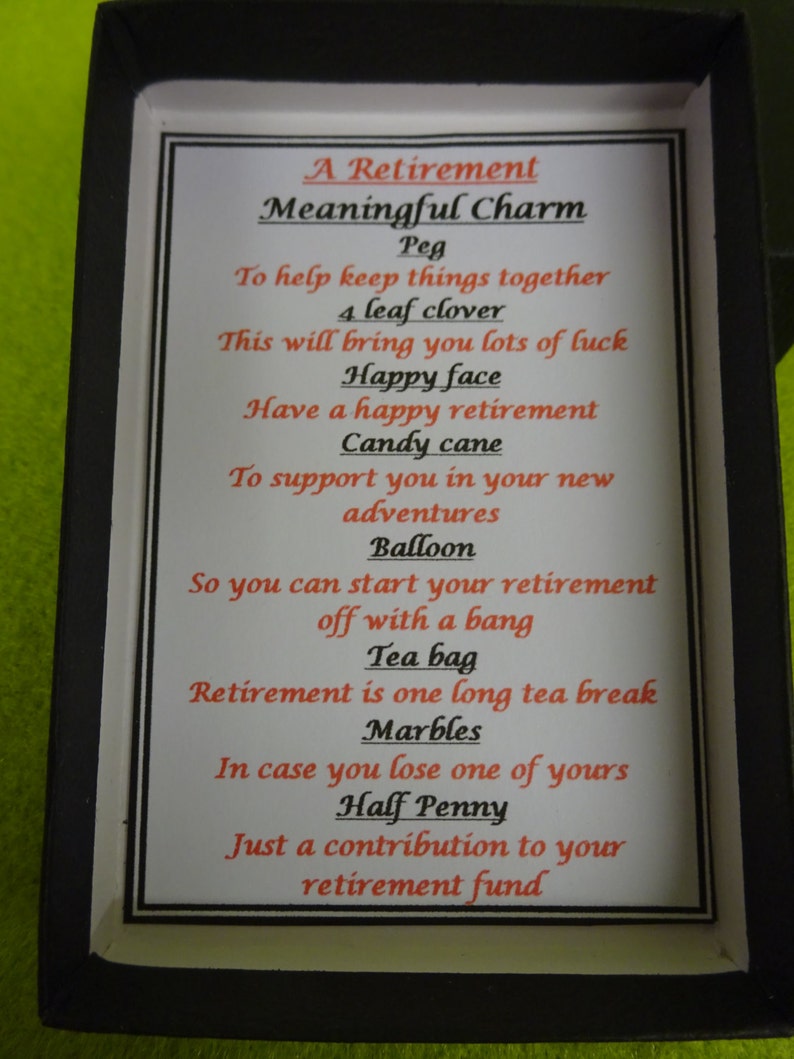 A Retirement
Meaningful Charm
Peg
To help keep things together
4 leaf clover
This will bring you lots of luck
Happy face
Have a happy retirement
Candy cane
To support you in your new
adventures
Balloon
So you can start your retirement
off with a bang
Tea bag
Retirement is one long tea break
Marbles
In case you lose one of yours
Half Penny
Just a contribution to your
retirement fund